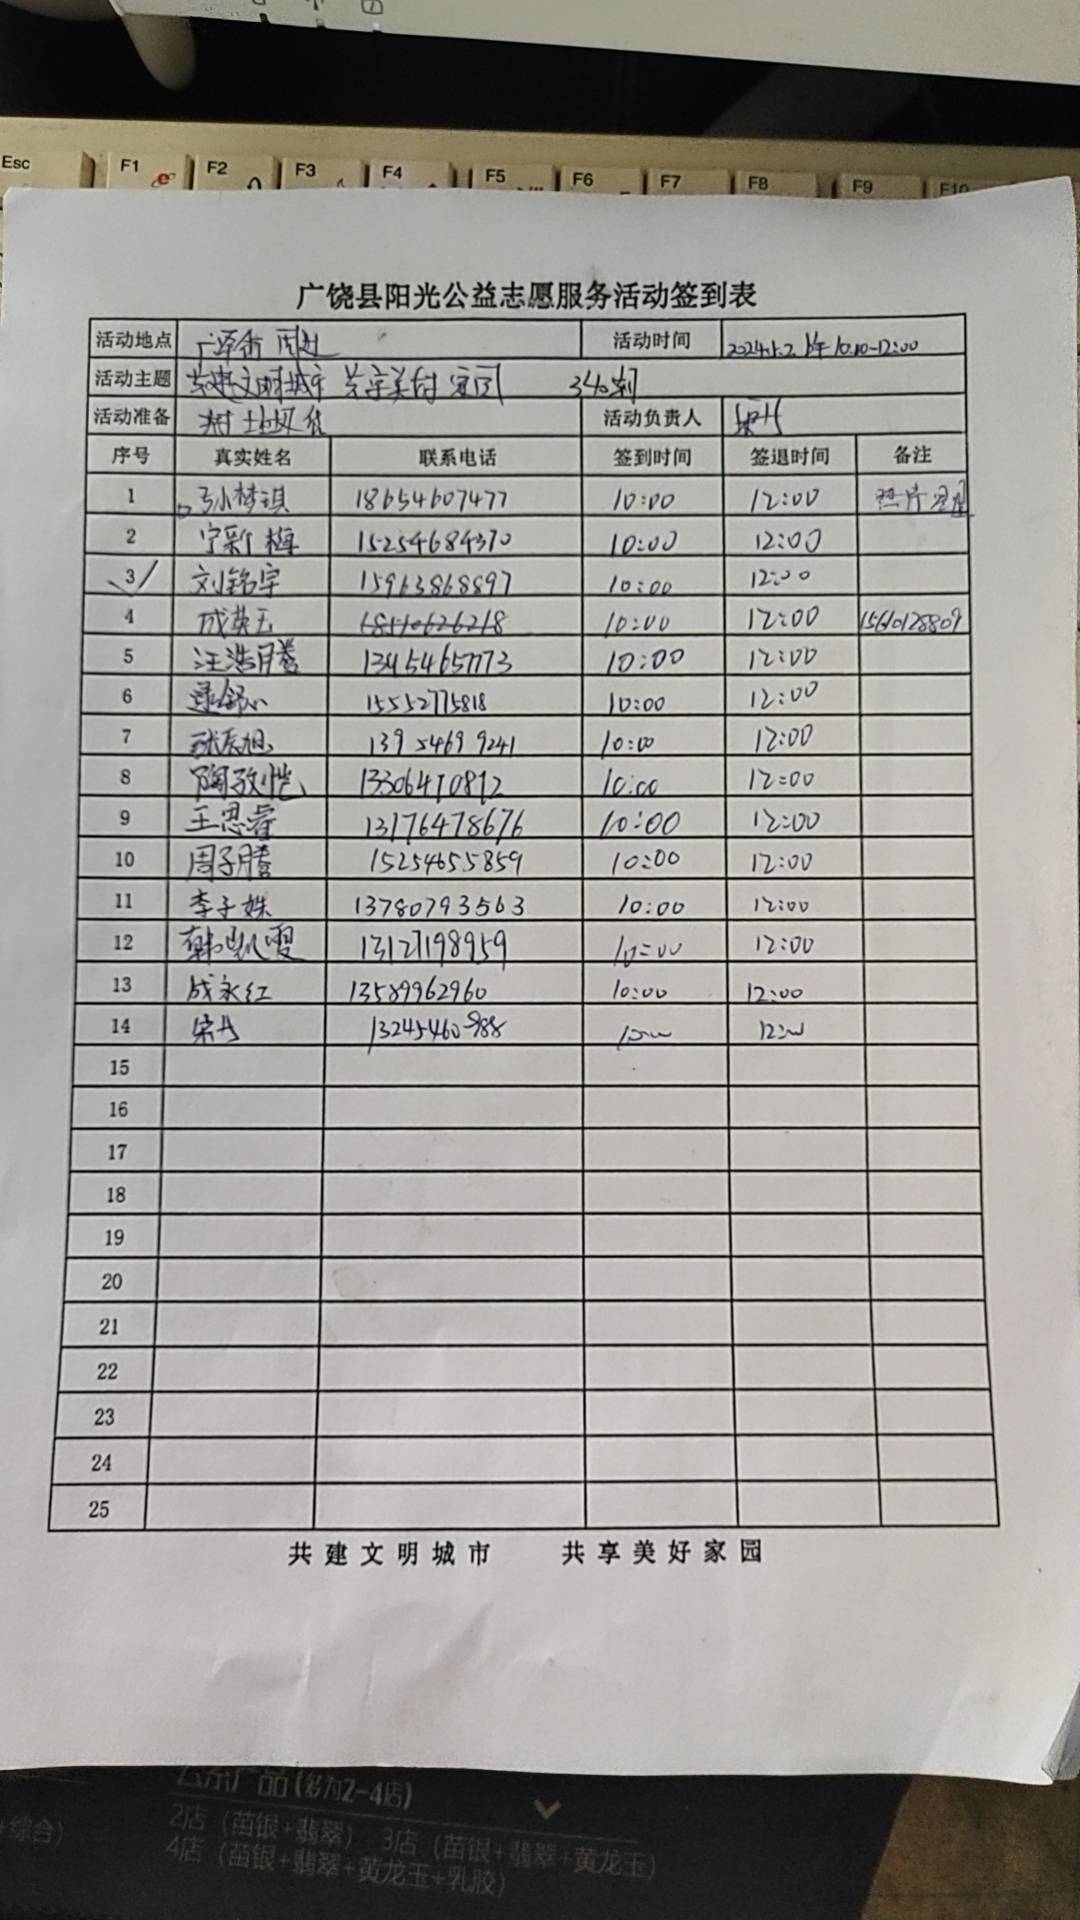 Esc F1 F2 F3 F4 F5 F6 F7 F8 F9 F10
广饶县阳光公益志愿服务活动签到表
活动地点 周边 活动时间 2024.5.2. 上午 10:00-12:00
活动主题 共建文明城市 共享美好家园 340
活动准备 活动负责人
序号 真实姓名 联系电话 签到时间 签退时间 备注
1 孙梦琪 18654607477 10:00 12:00 照片
2 宁新梅 15254684370 10:00 12:00
3 刘铭宇 15963868897 10:00 12:00
4 成英玉 10:00 12:00 15610128809
5 汪浩腾 13454657773 10:00 12:00
6 15552775818 10:00 12:00
7 13954699241 10:00 12:00
8 陶孜恺 13306410812 10:00 12:00
9 王思睿 13176478676 10:00 12:00
10 周子腾 15254655859 10:00 12:00
11 李子姝 13780793563 10:00 12:00
12 韩凯雯 13127198959 10:00 12:00
13 成永红 13589962960 10:00 12:00
14 宋丹 10:00 12:00
15
16
17
18
19
20
21
22
23
24
25
共建文明城市 共享美好家园
产品(多为2-4店)
2店(苗银+翡翠) 3店(苗银+翡翠+黄龙玉)
+综合)
4店(苗银+翡翠+黄龙玉+乳胶)